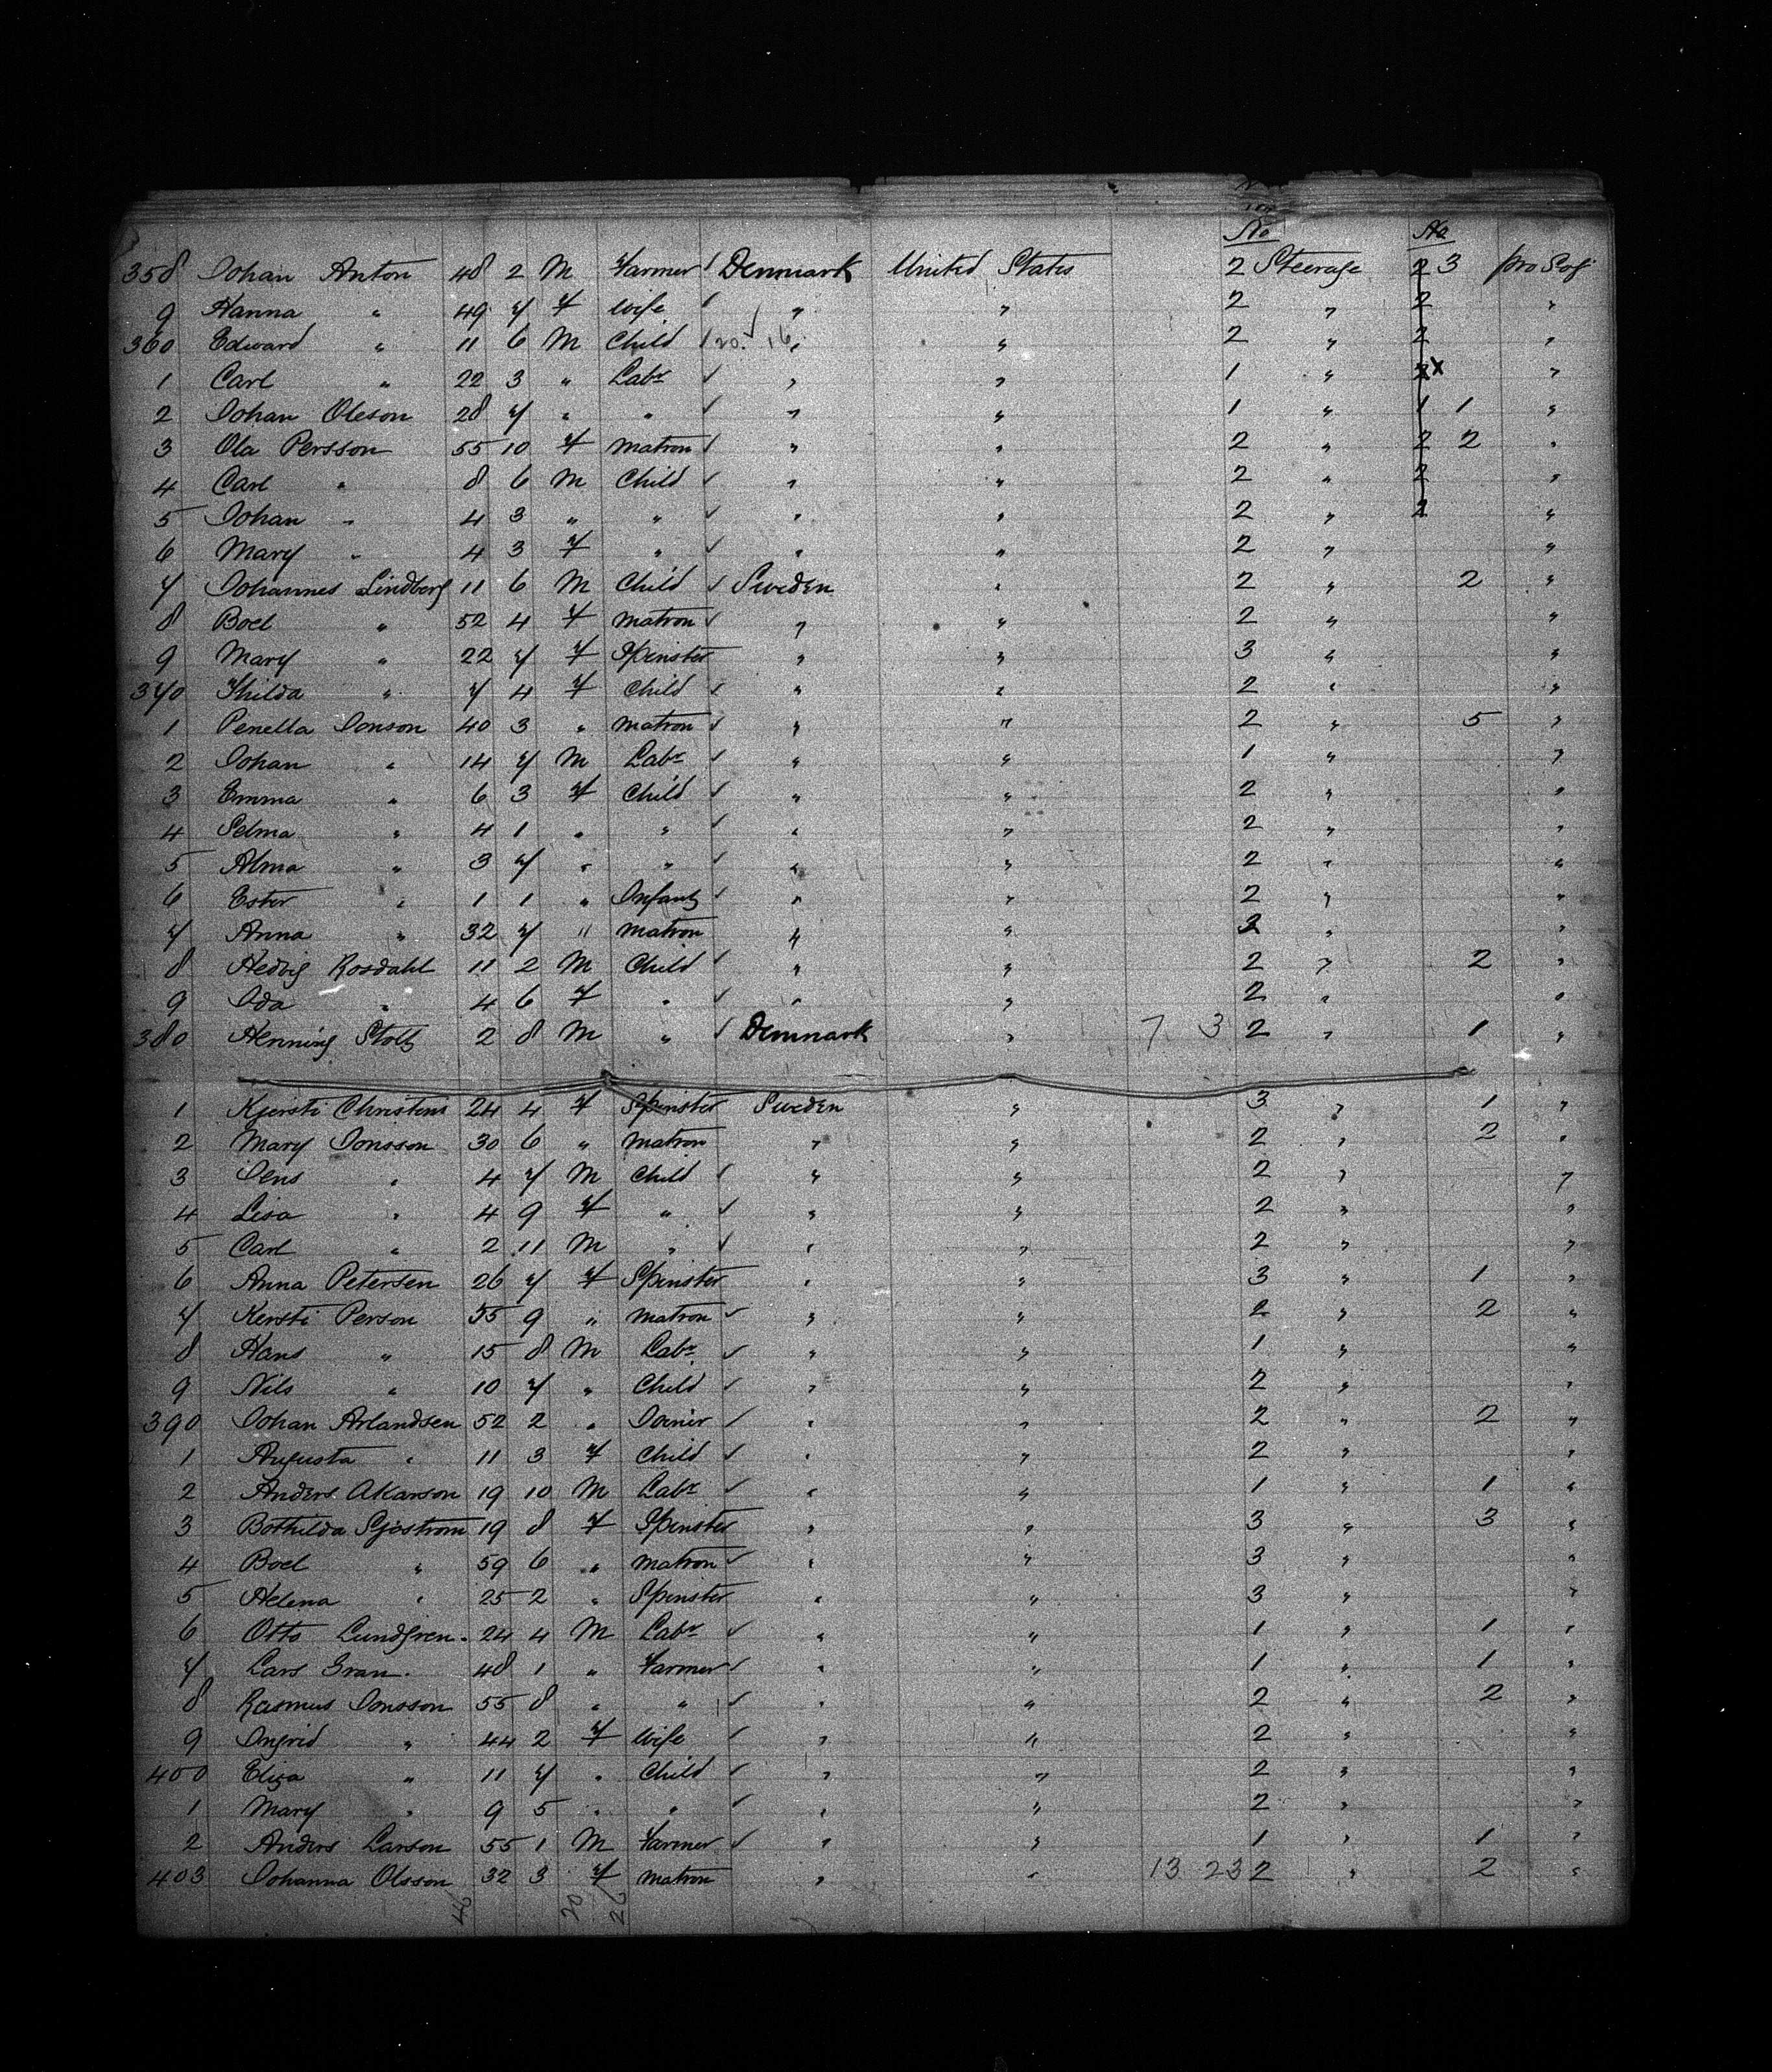 No No
358 Johan Anton 48 2 M Farmer ✓ Denmark United States 2 Steerage 2 3 pro Soj
9 Hanna " 49 7 F Wife ✓ " " 2 " 2 "
360 Edward " 11 6 M Child ✓ 20. 16 " " 2 " 2 "
1 Carl " 22 3 " Labr ✓ " " 1 " 2 x "
2 Johan Oleson 28 7 " " ✓ " " 1 " 1 1 "
3 Ola Persson 55 10 F Matron ✓ " " 2 " 2 2 "
4 Carl " 8 6 M Child ✓ " " 2 " 2 "
5 Johan " 4 3 " " ✓ " " 2 " 2 "
6 Mary " 4 3 F " ✓ " " 2 " "
7 Johannes Lindberg 11 6 M Child ✓ Sweden " 2 " 2 "
8 Boel " 52 4 F Matron ✓ " " 2 " "
9 Mary " 22 7 F Spinster " " 3 " "
370 Thilda " 7 4 F Child ✓ " " 2 " "
1 Penella Jonson 40 3 " Matron ✓ " " 2 " 5 "
2 Johan " 14 7 M Labr ✓ " " 1 " "
3 Emma " 6 3 F Child ✓ " " 2 " "
4 Selma " 4 1 " " ✓ " " 2 " "
5 Alma " 3 7 " " ✓ " " 2 " "
6 Ester " 1 1 " Infant ✓ " " 2 " "
7 Anna " 32 7 " Matron " " 2 " "
8 Hedvig Rosdahl 11 2 M Child ✓ " " 2 " 2 "
9 Ida " 4 6 F " ✓ " " 2 " "
380 Henning Stolt 2 8 M " ✓ Denmark " 7 3 2 " 1 "
1 Kjersti Christens 24 4 F Spinster Sweden " 3 " 1 "
2 Mary Jonsson 30 6 " Matron " " 2 " 2 "
3 Jens " 4 7 M Child ✓ " " 2 " "
4 Lisa " 4 9 F " ✓ " " 2 " "
5 Carl " 2 11 M " ✓ " " 2 " "
6 Anna Petersen 26 7 F Spinster " " 3 " 1 "
7 Kersti Person 55 9 " Matron ✓ " " 2 " 2 "
8 Hans " 15 8 M Labr ✓ " " 1 " "
9 Nils " 10 7 " Child ✓ " " 2 " "
390 Johan Arlandsen 52 2 " Joiner ✓ " " 2 " 2 "
1 Augusta " 11 3 F Child ✓ " " 2 " "
2 Anders Akarson 19 10 M Labr ✓ " " 1 " 1 "
3 Bothilda Sjöstrom 19 8 F Spinster " " 3 " 3 "
4 Boel " 59 6 " Matron ✓ " " 3 " "
5 Helena " 25 2 " Spinster " " 3 " "
6 Otto Lundgren 24 4 M Labr ✓ " " 1 " 1 "
7 Lars Gran 48 1 " Farmer ✓ " " 1 " 1 "
8 Rasmus Jonsson 55 8 " " ✓ " " 2 " 2 "
9 Ingrid " 44 2 F Wife ✓ " " 2 " "
400 Eliza " 11 7 " Child ✓ " " 2 " "
1 Mary " 9 5 " " ✓ " " 2 " "
2 Anders Larson 55 1 M Farmer ✓ " " 1 " 1 "
403 Johanna Olsson 32 3 F Matron " " 13 23 2 " 2 "
46 20 26